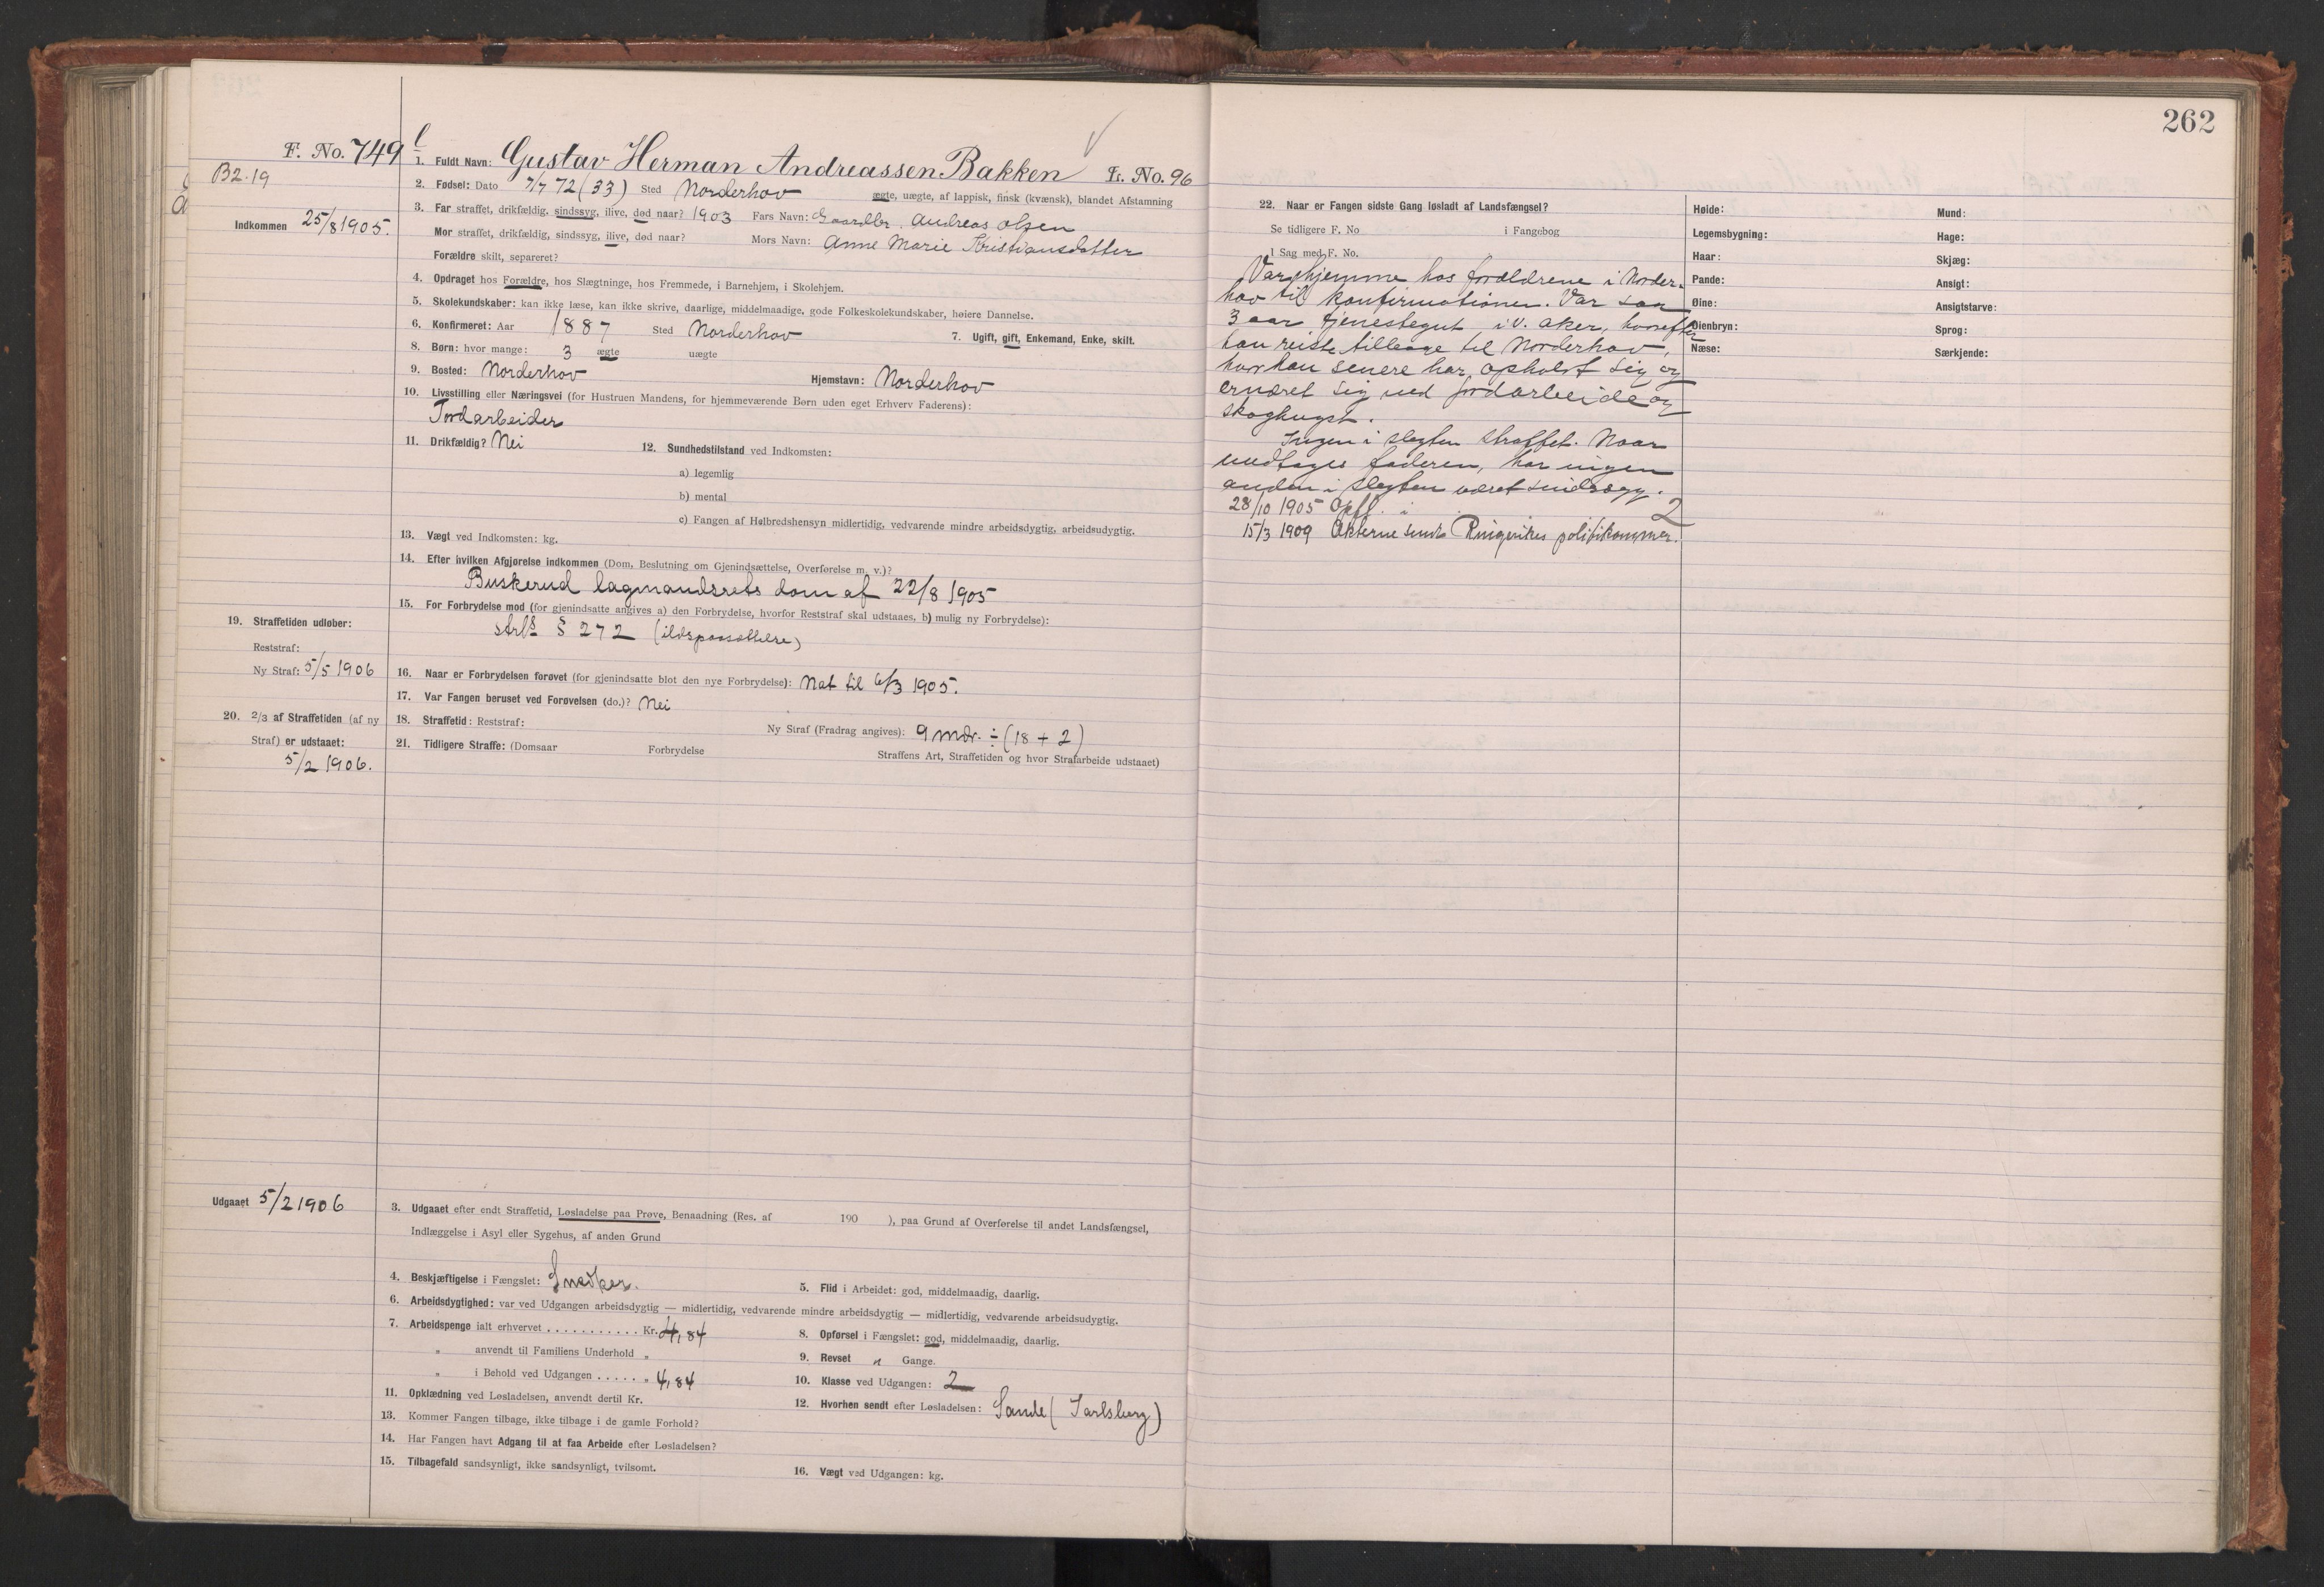 262
F. No. 749
B2.19
Indkommen 25/8 1905.
1. Fuldt Navn: Gustav Herman Andreassen Bakken Fr. No. 96
2. Fødsel: Dato 7/7 72 (33) Sted Norderhov ægte, uægte, af lappisk, finsk (kvænsk), blandet Afstamning
3. Far straffet, drikfældig, sindssyg, ilive, død naar? 1903 Fars Navn: Gaardbr. Andreas Olsen
Mor straffet, drikfældig, sindssyg, ilive, død naar? Mors Navn: Anne Marie Kristiansdatter
Forældre skilt, separeret?
4. Opdraget hos Forældre, hos Slægtninge, hos Fremmede, i Barnehjem, i Skolehjem.
5. Skolekundskaber: kan ikke læse, kan ikke skrive, daarlige, middelmaadige, gode Folkeskolekundskaber, høiere Dannelse.
6. Konfirmeret: Aar 1887 Sted Norderhov 7. Ugift, gift, Enkemand, Enke, skilt.
8. Børn: hvor mange: 3 ægte uægte
9. Bosted: Norderhov Hjemstavn: Norderhov
10. Livsstilling eller Næringsvei (for Hustruen Mandens, for hjemmeværende Børn uden eget Erhverv Faderens):
Jordarbeider
11. Drikfældig? Nei 12. Sundhedstilstand ved Indkomsten:
a) legemlig
b) mental
c) Fangen af Helbredshensyn midlertidig, vedvarende mindre arbeidsdygtig, arbeidsudygtig.
13. Vægt ved Indkomsten: kg.
14. Efter hvilken Afgjørelse indkommen (Dom, Beslutning om Gjenindsættelse, Overførelse m. v.)?
Buskerud lagmandsrets dom af 22/8 1905
15. For Forbrydelse mod (for gjenindsatte angives a) den Forbrydelse, hvorfor Reststraf skal udstaaes, b) mulig ny Forbrydelse):
strls § 272 (ildspaasættelse)
19. Straffetiden udløber:
Reststraf:
Ny Straf: 5/5 1906
16. Naar er Forbrydelsen forøvet (for gjenindsatte blot den nye Forbrydelse): Nat til 6/3 1905.
17. Var Fangen beruset ved Forøvelsen (do.)? Nei
20. 2/3 af Straffetiden (af ny
Straf) er udstaaet:
5/2 1906.
18. Straffetid: Reststraf: Ny Straf (Fradrag angives): 9 mdr. ÷ (18 + 2)
21. Tidligere Straffe: (Domsaar Forbrydelse Straffens Art, Straffetiden og hvor Strafarbeide udstaaet)
Udgaaet 5/2 1906
3. Udgaaet efter endt Straffetid, Løsladelse paa Prøve, Benaadning (Res. af 190 ), paa Grund af Overførelse til andet Landsfængsel,
Indlæggelse i Asyl eller Sygehus, af anden Grund
4. Beskjæftigelse i Fængslet: Snedker. 5. Flid i Arbeidet: god, middelmaadig, daarlig.
6. Arbeidsdygtighed: var ved Udgangen arbeidsdygtig — midlertidig, vedvarende mindre arbeidsdygtig — midlertidig, vedvarende arbeidsudygtig.
7. Arbeidspenge ialt erhvervet . . . . . . . . . . . Kr. 4,84 8. Opførsel i Fængslet: god, middelmaadig, daarlig.
" anvendt til Familiens Underhold " 9. Revset " Gange.
" i Behold ved Udgangen . . . . . " 4,84 10. Klasse ved Udgangen: 2
11. Opklædning ved Løsladelsen, anvendt dertil Kr. 12. Hvorhen sendt efter Løsladelsen: Sande (Jarlsberg)
13. Kommer Fangen tilbage, ikke tilbage i de gamle Forhold?
14. Har Fangen havt Adgang til at faa Arbeide efter Løsladelsen?
15. Tilbagefald sandsynligt, ikke sandsynligt, tvilsomt. 16. Vægt ved Udgangen: kg.
22. Naar er Fangen sidste Gang løsladt af Landsfængsel?
Se tidligere F. No i Fangebog
I Sag med F. No.
Var hjemme hos forældrene i Norder-
hov til konfirmationen. Var saa
3 aar tjenestegut i V. Aker, hvorefter
han reiste tilbage til Norderhov,
hvor han senere har opholdt sig og
ernæret sig ved jordarbeide og
skoghugst.
Ingen i slegten straffet. Naar
undtages faderen, har ingen
anden i slegten været sindssyg.
28/10 1905 Opfl. i 2
15/3 1909 Akterne sendt Ringerikes politikammer.
Høide:
Legemsbygning:
Haar:
Pande:
Øine:
Øienbryn:
Næse:
Mund:
Hage:
Skjæg:
Ansigt:
Ansigtsfarve:
Sprog:
Særkjende: